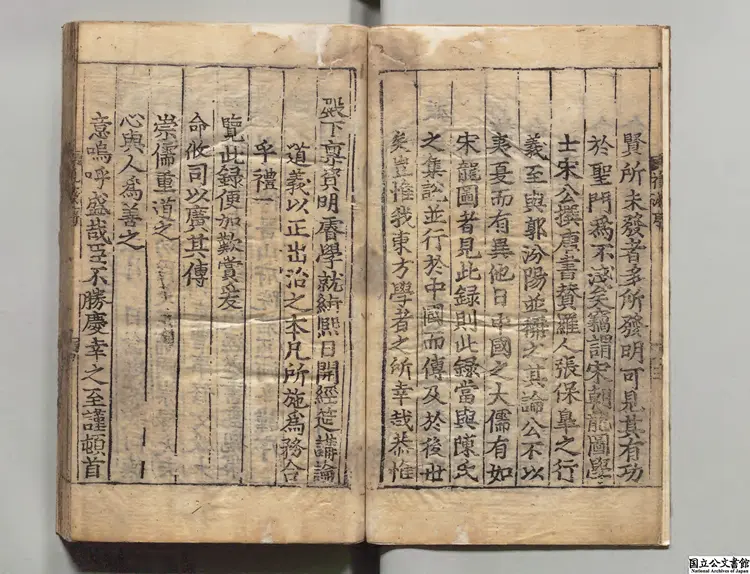 賢所未發者多所發明可見其有功
於聖門爲不淺矣竊謂宋朝龍圖學
士宋公撰唐書贊羅人張保皐之行
義至與郭汾陽並稱之其論公不以
夷夏而有異他日中國之大儒有如
宋龍圖者見此録則此録當與陳氏
之集說並行於中國而傳及於後世
矣豈惟我東方學者之所幸哉恭惟
殿下稟資明睿學就緝熙日開經筵講論
道義以正出治之本凡所施爲務合
乎禮一
覽此録便加歎賞爰
命攸司以廣其傳
崇儒重道之
心與人爲善之
意嗚呼盛哉臣不勝慶幸之至謹頓首
国立公文書館
National Archives of Japan